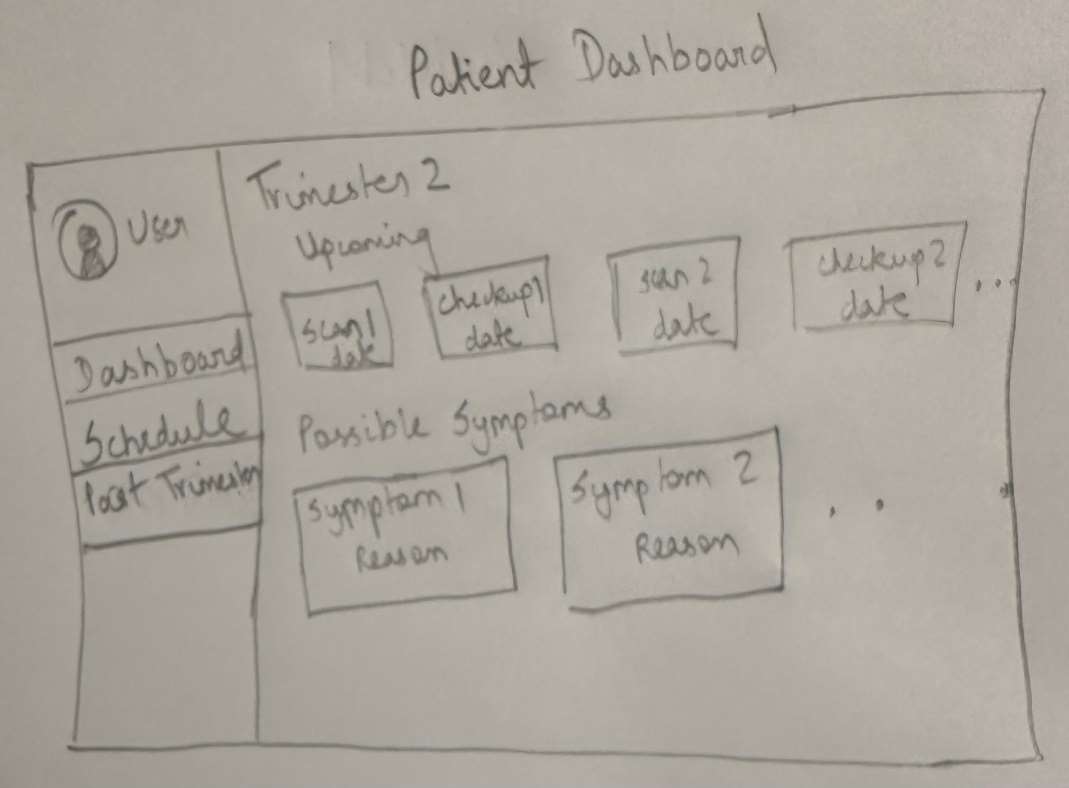 Patient Dashboard
User
Dashboard
Schedule
Past Trimester
Trimester 2
Upcoming
scan 1
date
checkup 1
date
scan 2
date
checkup 2
date
...
Possible Symptoms
Symptom 1
Reason
Symptom 2
Reason
. .